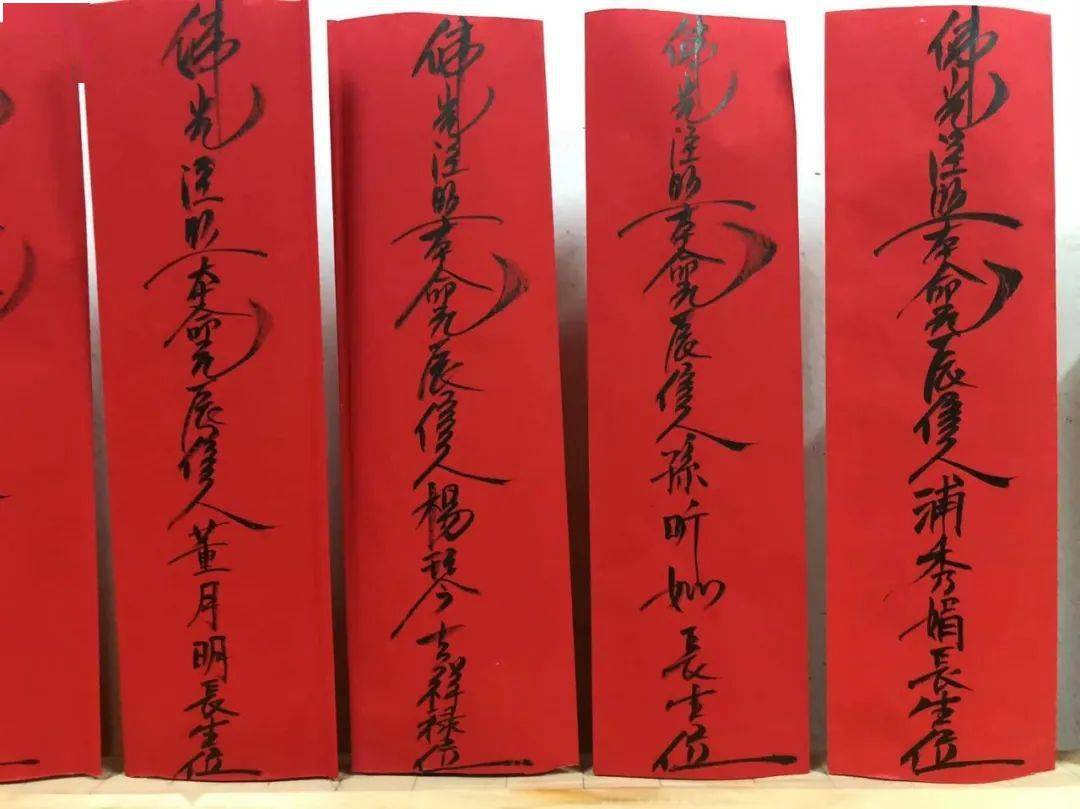 佛光注照本命元辰信人浦秀娟長生位
佛光注照本命元辰信人孫昕長生位
佛光注照本命元辰信人楊今吉祥禄位
佛光注照本命元辰信人董月明長生位